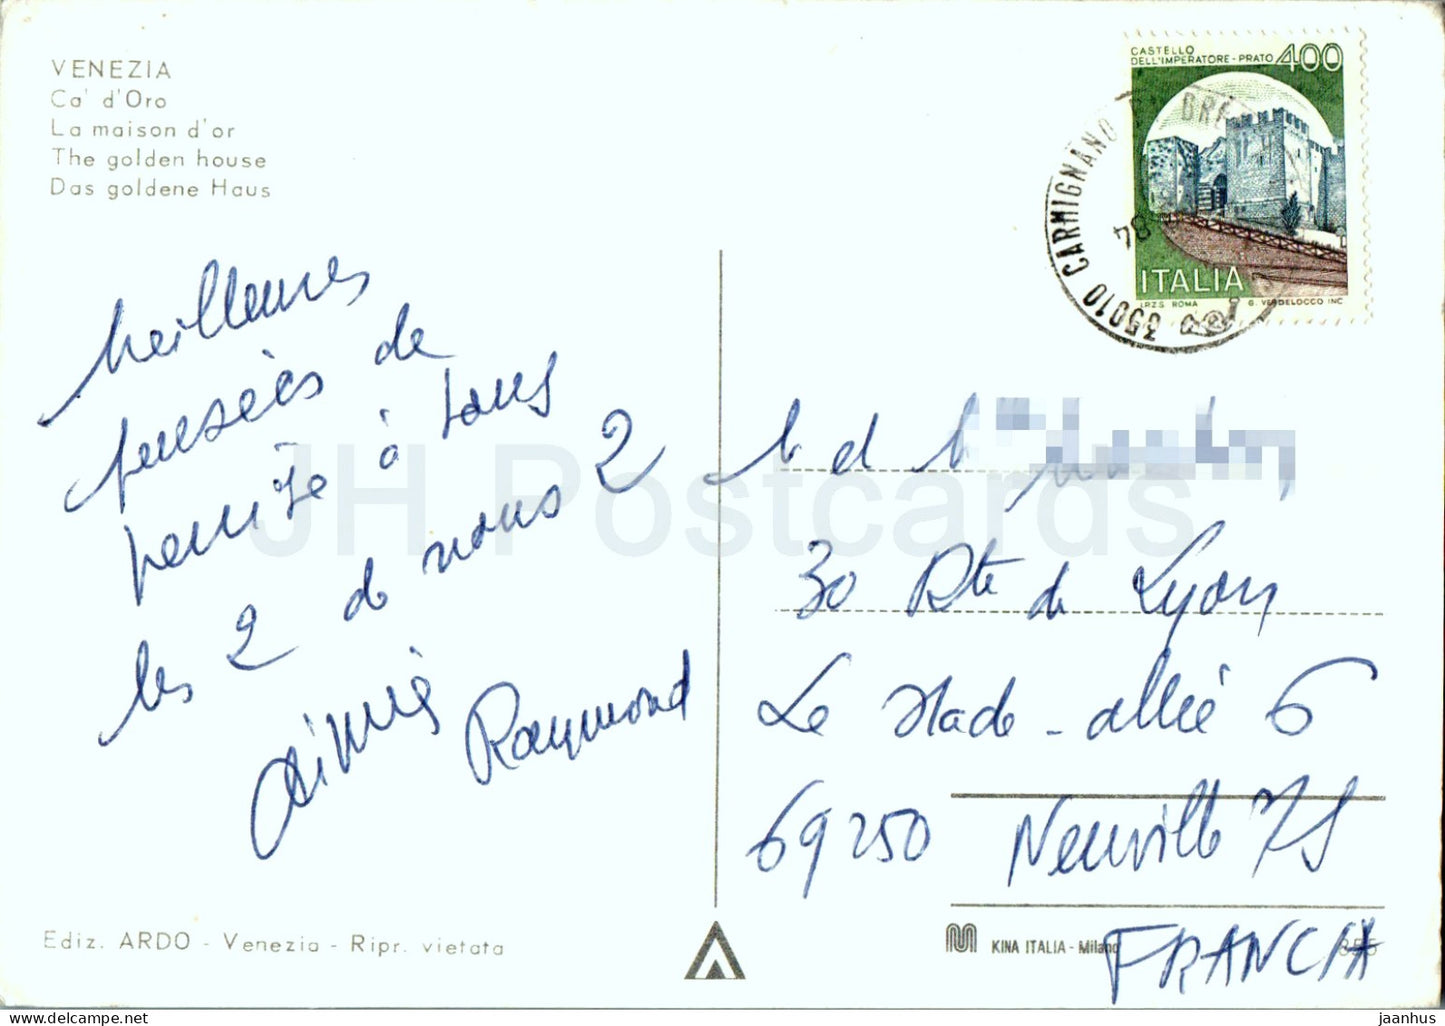 VENEZIA
Ca' d'Oro
La maison d'or
The golden house
Das goldene Haus
CASTELLO
DELL'IMPERATORE - PRATO 400
ITALIA
I.P.Z.S. ROMA G. VERDELOCCO INC
35010 CARMIGNANO
84
Meilleures
pensées de
à tous
les 2 de nous 2
Aimée
Raymond
30 Rte de Lyon
Le Stade - allée 6
69250 Neuville /S
FRANCIA
Ediz. ARDO - Venezia - Ripr. vietata
KINA ITALIA - Milano
JH Postcards
jaanhus